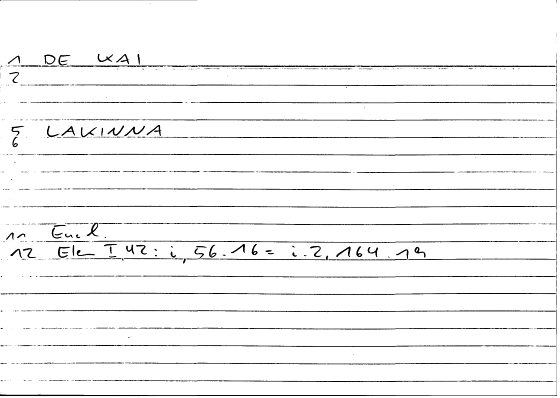 1 DE KAI
2
5 LAKINNA
6
11 Eucl.
12 Elem I 42: i, 56.16 = i.2, 164.19